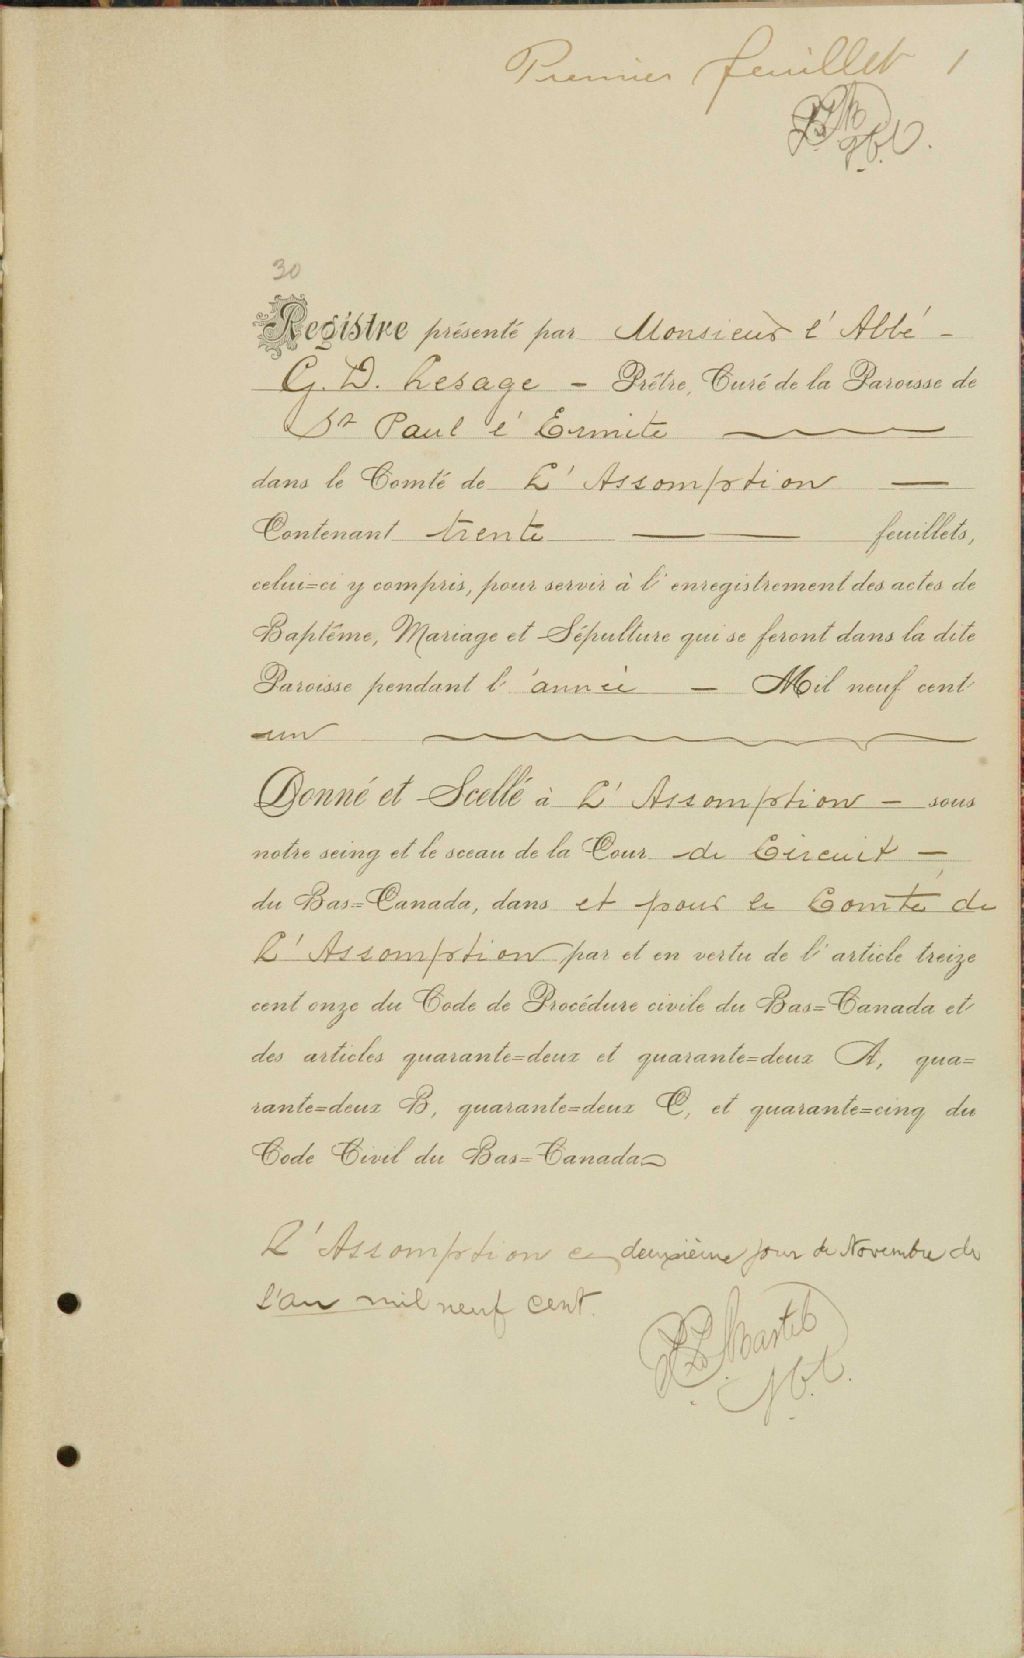 Premier feuillet 1
30
Registre présenté par Monsieur l'Abbé -
G. D. Lesage - Prêtre, Curé de la Paroisse de
St Paul l'Ermite
dans le Comté de L'Assomption —
Contenant trente — — feuillets,
celui=ci y compris, pour servir à l'enregistrement des actes de
Baptême, Mariage et Sépulture qui se feront dans la dite
Paroisse pendant l'année — Mil neuf cent
un
Donné et Scellé à L'Assomption - sous
notre seing et le sceau de la Cour de Circuit -
du Bas=Canada, dans et pour le Comté de
L'Assomption par et en vertu de l'article treize
cent onze du Code de Procédure civile du Bas=Canada et
des articles quarante=deux et quarante=deux A, qua=
rante=deux B, quarante=deux C, et quarante=cinq du
Code Civil du Bas=Canada
L'Assomption ce deuxième jour de Novembre de
l'an mil neuf cent.
Martel